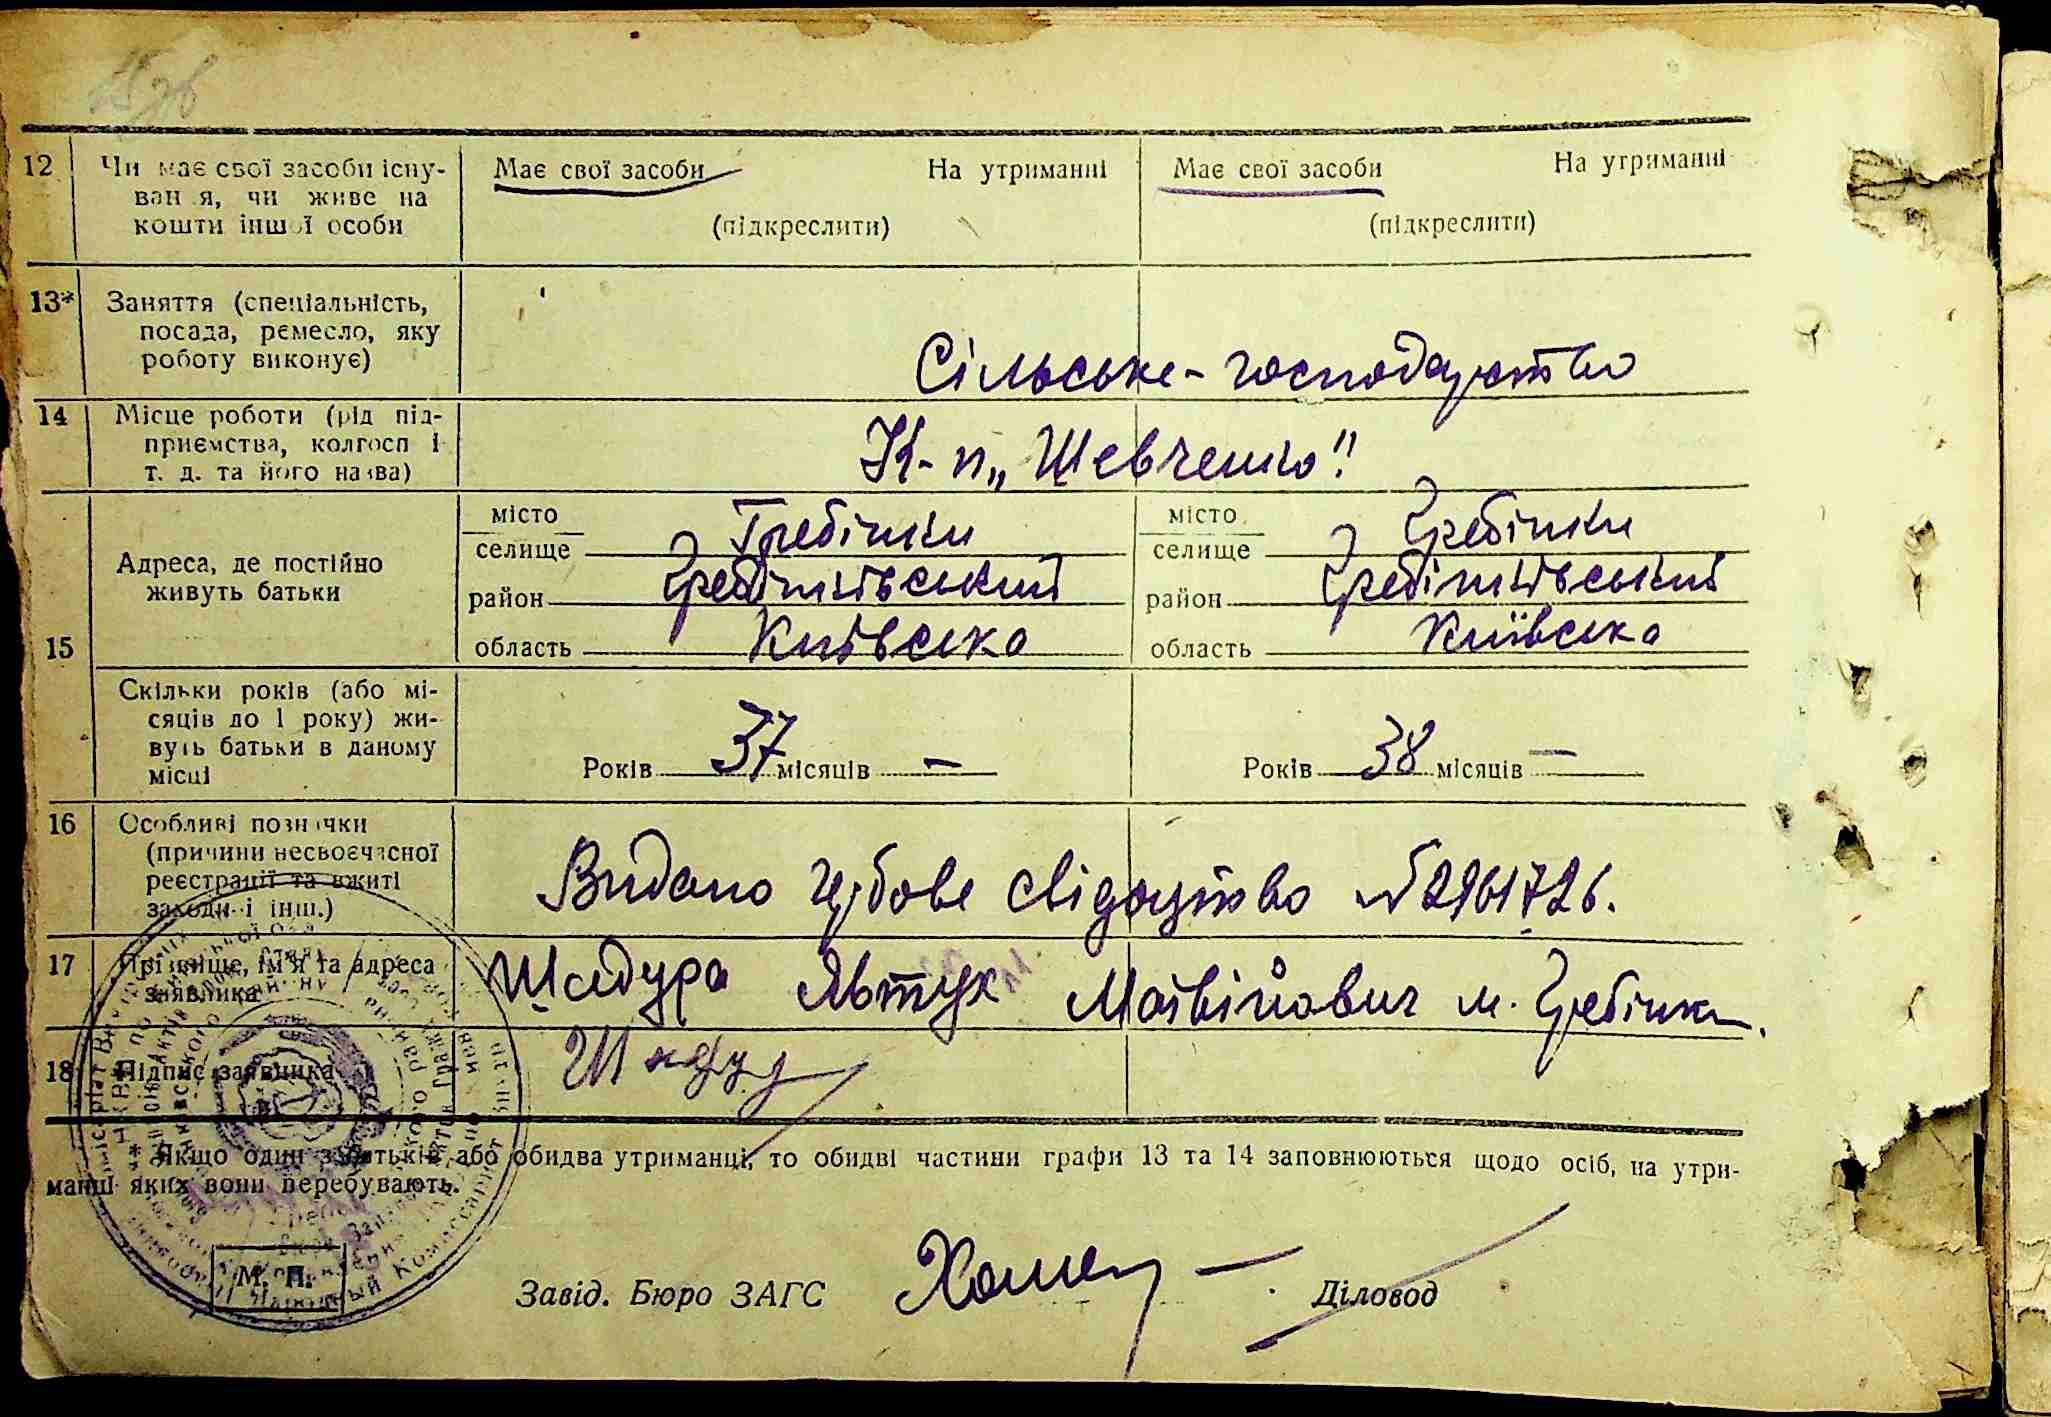 12 Чи має свої засоби існу- Має свої засоби На утриманні Має свої засоби На утриманні
вання, чи живе на
кошти іншої особи (підкреслити) (підкреслити)
13* Заняття (спеціальність,
посада, ремесло, яку
роботу виконує) Сільське-господарство
14 Місце роботи (рід під-
приємства, колгосп і К-п „Шевченко"
т. д. та його назва)
місто Гребінки місто Гребінки
селище селище
15 Адреса, де постійно
живуть батьки район Гребінківський район Гребінківський
область Київська область Київська
Скільки років (або мі-
сяців до 1 року) жи-
вуть батьки в даному
місці Років 37 місяців — Років 38 місяців —
16 Особливі позначки
(причини несвоєчасної
реєстрації та вжиті Видано свідоцтво №2961726.
заходи і інш.)
17 Прізвище, ім'я та адреса
заявника Шадура Явтух Матвійович м. Гребінки.
18 Підпис заявника
* Якщо один з батьків або обидва утриманці, то обидві частини графи 13 та 14 заповнюються щодо осіб, на утри-
манні яких вони перебувають.
М. П. Завід. Бюро ЗАГС Діловод